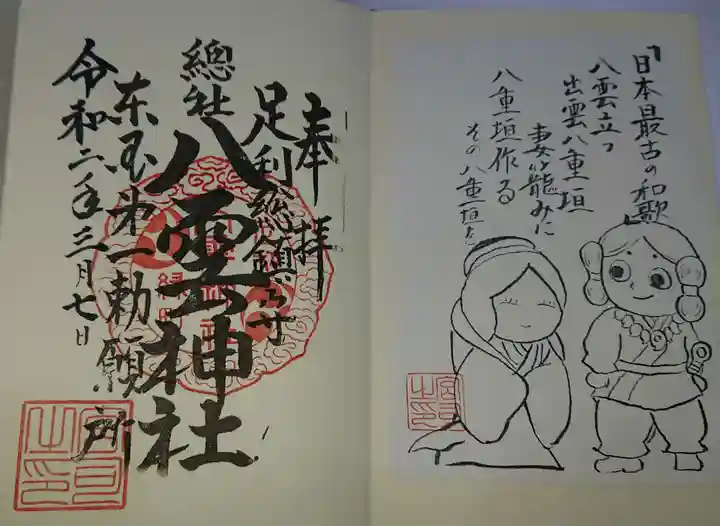 「日本最古の和歌」
八雲立つ
出雲八重垣
妻籠みに
八重垣作る
その八重垣を
奉拝
足利總鎮守
總社
八雲神社
東国第一勅願所
令和二年三月七日
宮司之印
宮司之印